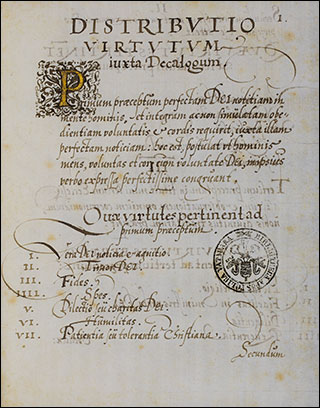 1.
DISTRIBVTIO
VIRTVTVM
iuxta Decalogum.
Primum præceptum perfectam DEI notitiam in
mente hominis, et integram ac non simulatam obe-
dientiam voluntatis & cordis requirit, iuxta illam
perfectam noticiam: hoc est, postulat vt hominis
mens, voluntas et cor cum voluntate DEI, in ipsius
verbo expressa perfectissime congruant.
Quæ virtutes pertinent ad
primum præceptum.
I. Vera DEI noticia &
II. Timor DEI.
III. Fides.
IIII. Spes.
V. Dilectio seu charitas DEI.
VI. Humilitas.
VII. Patientia seu tolerantia Christiana.
Secundum